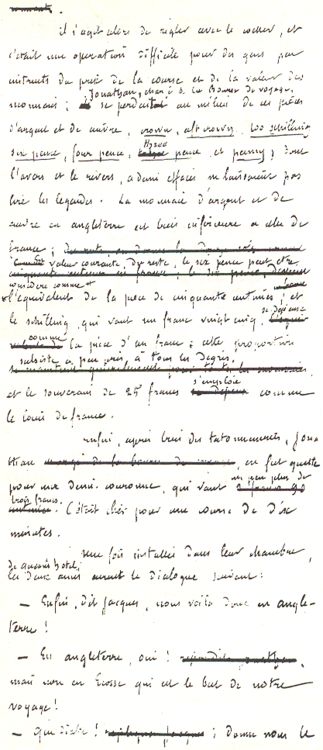 il s'agit alors de régler avec le cocher, et
c'était une opération difficile pour des gens peu
instruits du prix de la course et de la valeur des
Jonathan, chargé de la bourse de voyage,
monnaies ; se perdait au milieu de ces pièces
d'argent et de cuivre, crown, half crown, two schilling
three
six pence, four pence, pence et penny ; dont
l'avers et le revers, à demi effacés ne laissaient pas
lire les légendes. La monnaie d'argent et de
cuivre en angleterre est bien inférieure à celle de
france ;
valeur courante, du reste, le six pence peut être
considéré comme
l'équivalent de la pièce de cinquante centimes ; et
le schilling, qui vaut un franc vingt cinq, se dépense
comme
la pièce d'un franc ; cette proportion
subsiste à peu près, à tous les degrés,
s'emploie
et le souverain de 25 francs comme
le louis de france.
Enfin, après bien des tatonnements, Jona
than en fut quitte
un peu plus de
pour une demi couronne, qui vaut
trois francs.
C'était cher pour une course de dix
minutes.
Une fois installés dans leur chambre
de queen's hotel,
les deux amis eurent le dialogue suivant :
— Enfin, dit Jacques, nous voilà donc en angle-
terre !
— En angleterre, oui !
mais non en Ecosse qui est le but de notre
voyage !
— Que diable ! ; donne nous le